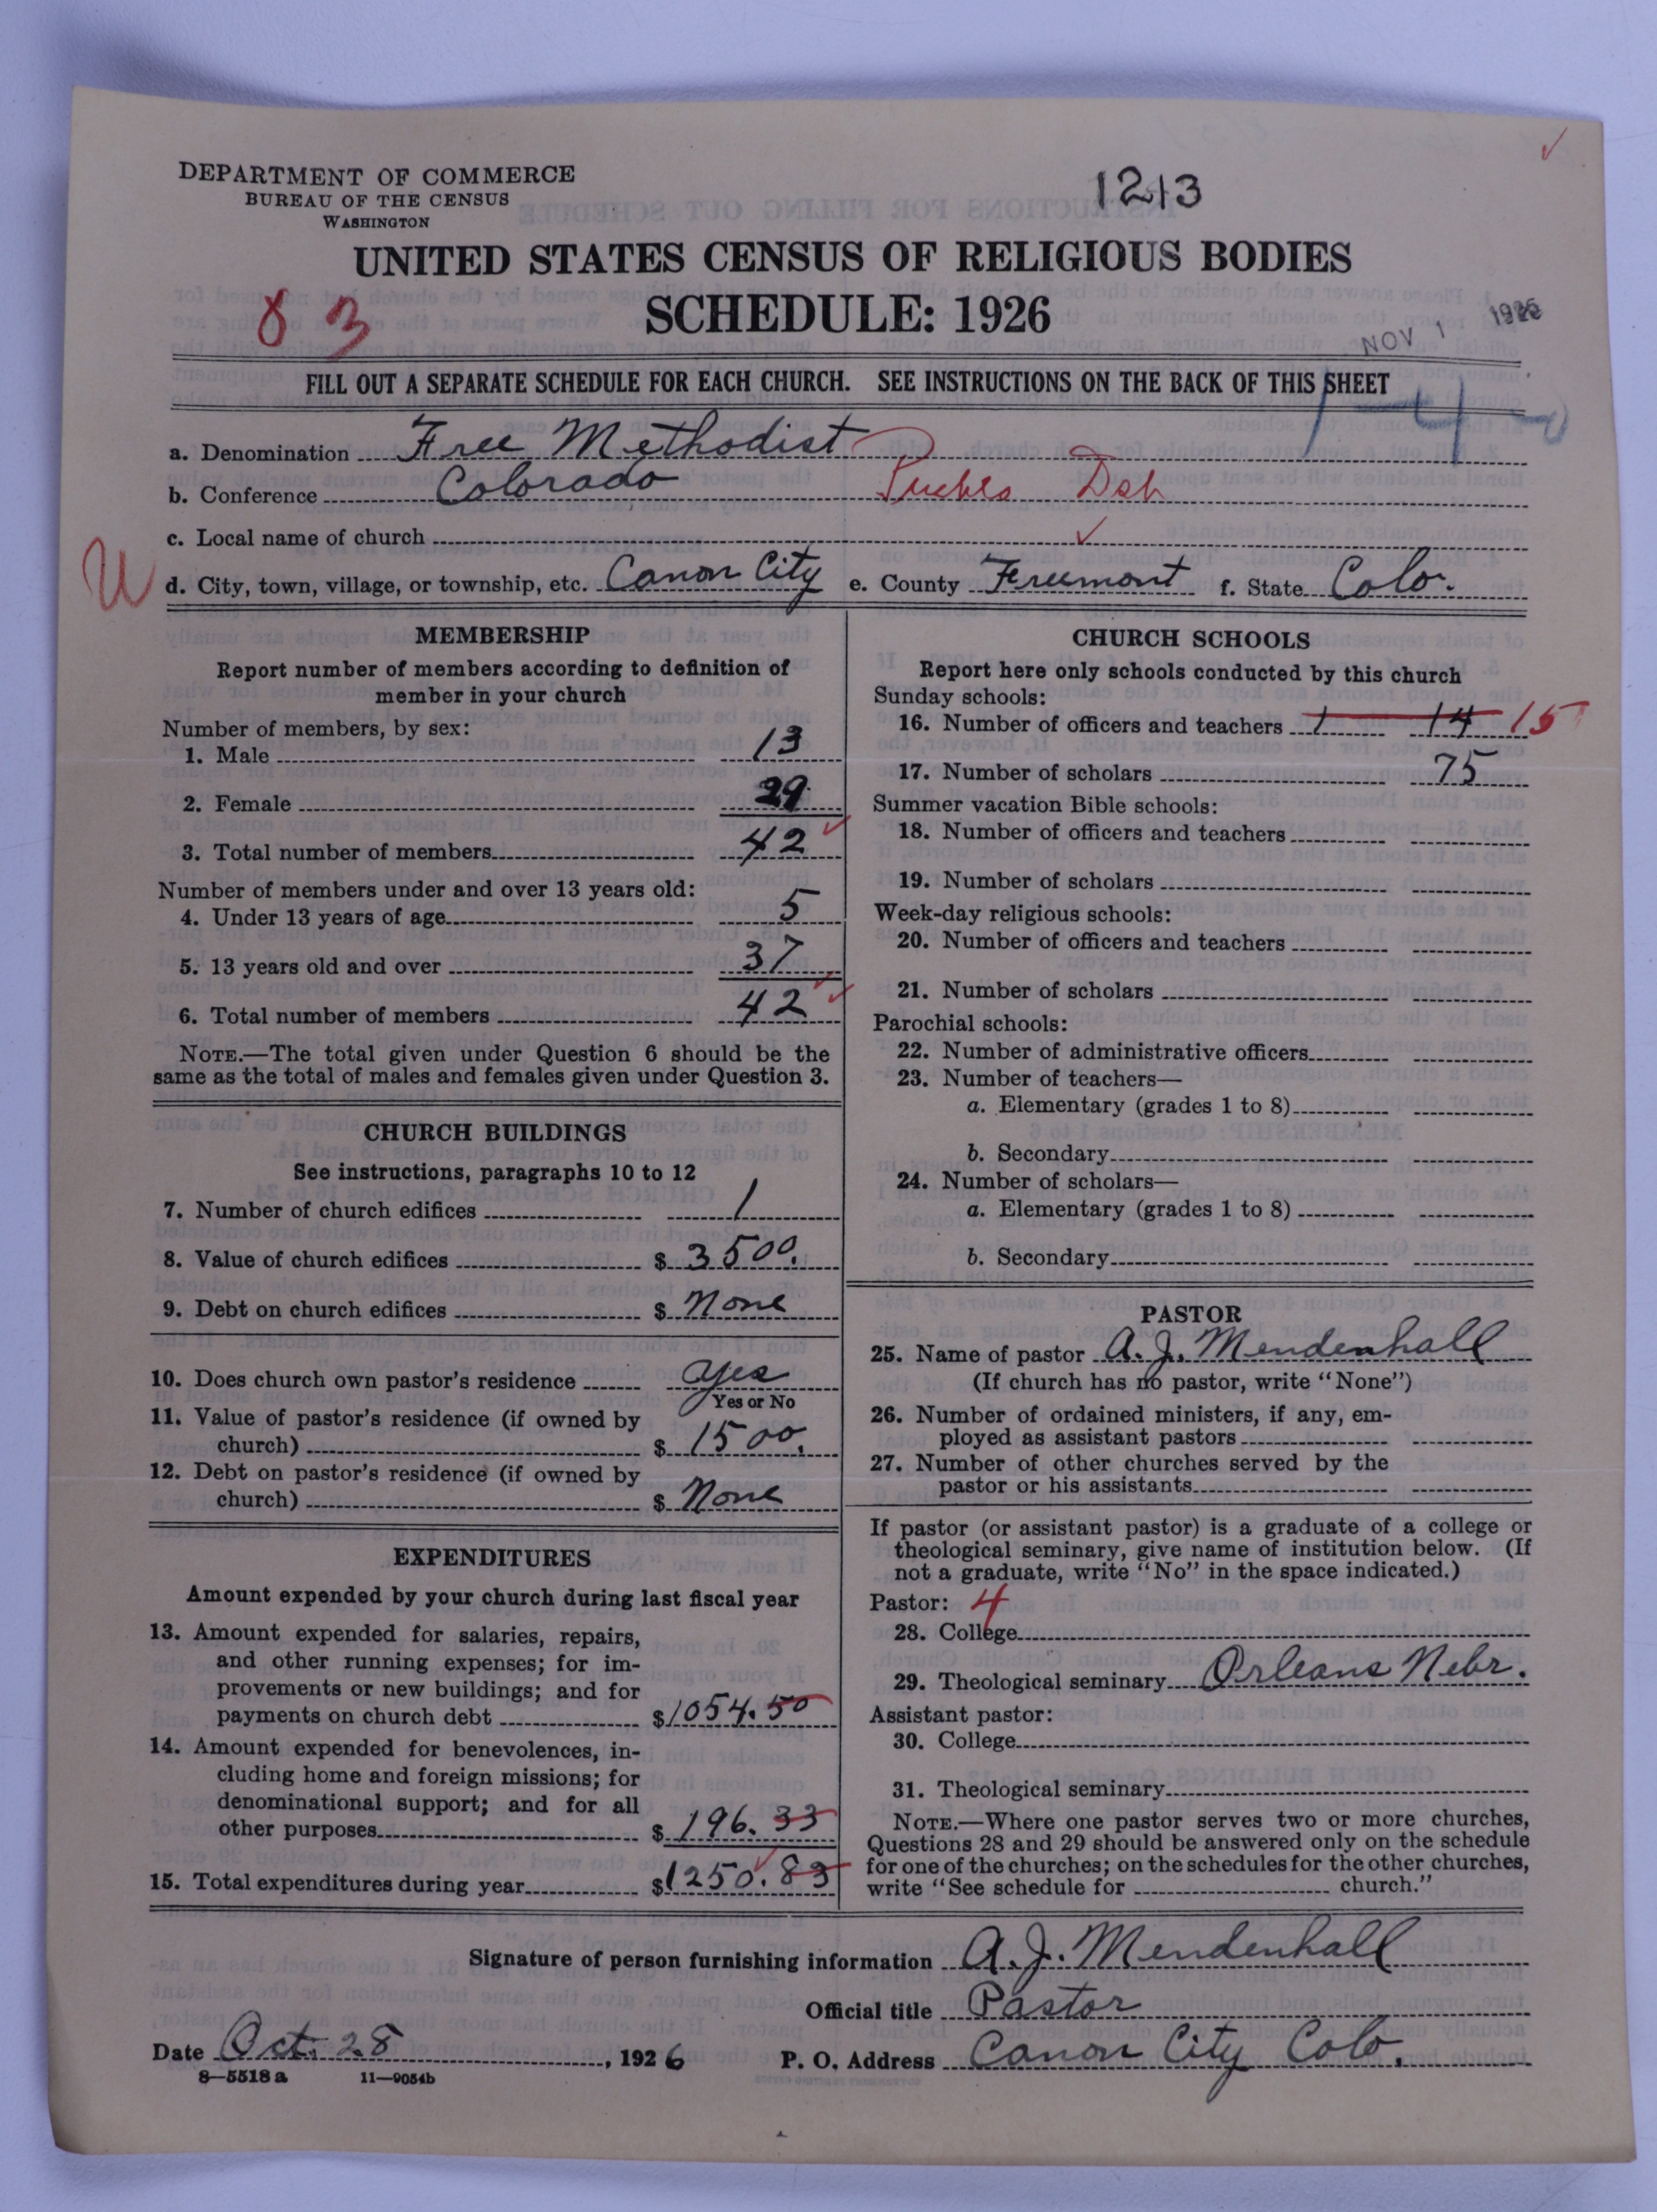 DEPARTMENT OF COMMERCE
BUREAU OF THE CENSUS
WASHINGTON
1213
UNITED STATES CENSUS OF RELIGIOUS BODIES
SCHEDULE: 1926
83
NOV 1 1926
FILL OUT A SEPARATE SCHEDULE FOR EACH CHURCH. SEE INSTRUCTIONS ON THE BACK OF THIS SHEET
a. Denomination Free Methodist
b. Conference Colorado Pueblo Dst
c. Local name of church
U
d. City, town, village, or township, etc. Canon City e. County Freemont f. State Colo.
MEMBERSHIP
Report number of members according to definition of
member in your church
Number of members, by sex:
1. Male 13
2. Female 29
3. Total number of members 42
Number of members under and over 13 years old:
4. Under 13 years of age 5
5. 13 years old and over 37
6. Total number of members 42
NOTE.—The total given under Question 6 should be the
same as the total of males and females given under Question 3.
CHURCH BUILDINGS
See instructions, paragraphs 10 to 12
7. Number of church edifices 1
8. Value of church edifices $ 3500.
9. Debt on church edifices $ None
10. Does church own pastor's residence yes
Yes or No
11. Value of pastor's residence (if owned by
church) $ 1500.
12. Debt on pastor's residence (if owned by
church) $ None
EXPENDITURES
Amount expended by your church during last fiscal year
13. Amount expended for salaries, repairs,
and other running expenses; for im-
provements or new buildings; and for
payments on church debt $1054.50
14. Amount expended for benevolences, in-
cluding home and foreign missions; for
denominational support; and for all
other purposes $ 196.33
15. Total expenditures during year $1250.83
CHURCH SCHOOLS
Report here only schools conducted by this church
Sunday schools:
16. Number of officers and teachers 1 14 15
17. Number of scholars 75
Summer vacation Bible schools:
18. Number of officers and teachers
19. Number of scholars
Week-day religious schools:
20. Number of officers and teachers
21. Number of scholars
Parochial schools:
22. Number of administrative officers
23. Number of teachers—
a. Elementary (grades 1 to 8)
b. Secondary
24. Number of scholars—
a. Elementary (grades 1 to 8)
b. Secondary
PASTOR
25. Name of pastor A. J. Mendenhall
(If church has no pastor, write "None")
26. Number of ordained ministers, if any, em-
ployed as assistant pastors
27. Number of other churches served by the
pastor or his assistants
If pastor (or assistant pastor) is a graduate of a college or
theological seminary, give name of institution below. (If
not a graduate, write "No" in the space indicated.)
Pastor: 4
28. College
29. Theological seminary Orleans Nebr.
Assistant pastor:
30. College
31. Theological seminary
NOTE.—Where one pastor serves two or more churches,
Questions 28 and 29 should be answered only on the schedule
for one of the churches; on the schedules for the other churches,
write "See schedule for church."
Signature of person furnishing information A. J. Mendenhall
Official title Pastor
Date Oct. 28, 1926 P. O. Address Canon City Colo.
8—5518 a 11—9054b